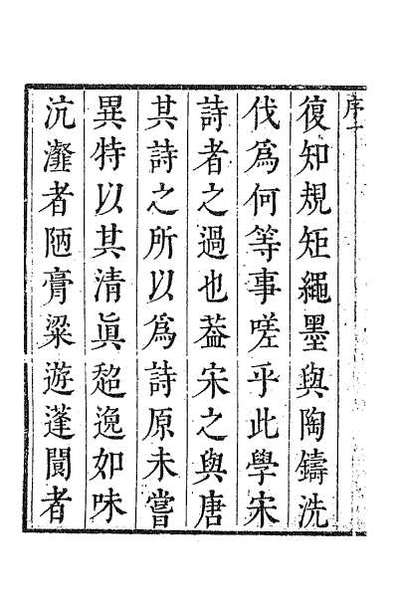 序一
復知規矩繩墨與陶鑄洗
伐爲何等事嗟乎此學宋
詩者之過也葢宋之與唐
其詩之所以爲詩原未嘗
異特以其清眞超逸如味
沆瀣者陋膏粱遊蓬閬者